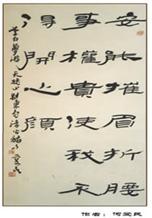 安能摧眉折腰
事權貴使我不
得開心顏
作者：何爱民